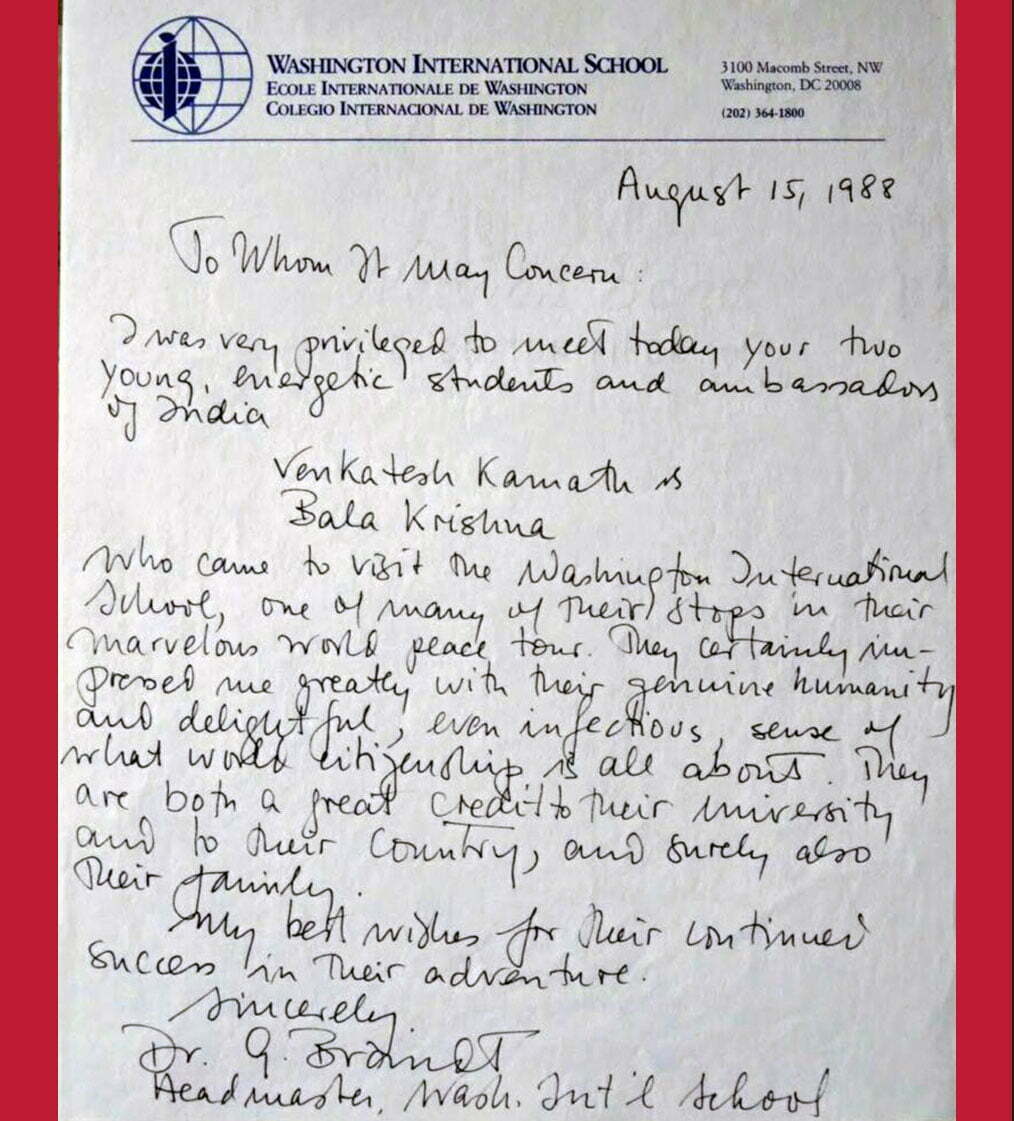 WASHINGTON INTERNATIONAL SCHOOL
ECOLE INTERNATIONALE DE WASHINGTON
COLEGIO INTERNACIONAL DE WASHINGTON
3100 Macomb Street, NW
Washington, DC 20008
(202) 364-1800
August 15, 1988
To Whom It May Concern:
I was very privileged to meet today your two
young, energetic students and ambassadors
of India
Venkatesh Kamath &
Bala Krishna
who came to visit the Washington International
School, one of many of their stops in their
marvelous world peace tour. They certainly im-
pressed me greatly with their genuine humanity
and delightful, even infectious, sense of
what world citizenship is all about. They
are both a great credit to their university
and to their country, and surely also
their family.
My best wishes for their continued
success in their adventure.
Sincerely,
Dr. G. Brandt
Headmaster, Wash. Int'l School